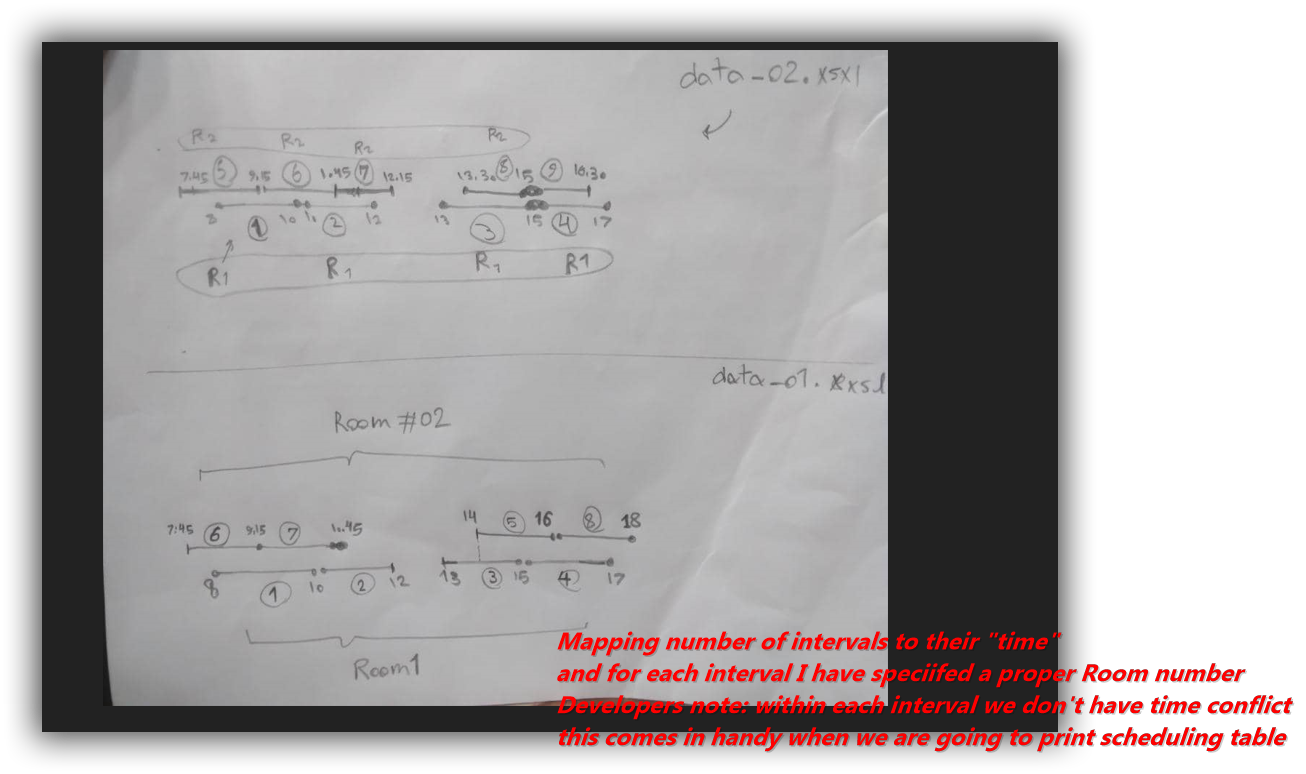 data-02.xsxl
R2 R2 R2 R2
7:45 5 9,15 6 1.45 7 12.15 13.30 8 15 9 16.30
8 1 10 10 2 12 13 3 15 4 17
R1 R1 R1 R1
data-01.xxsl
Room #02
7:45 6 9,15 7 10.45 14 5 16 8 18
8 1 10 2 12 13 3 15 4 17
Room1
Mapping number of intervals to their "time"
and for each interval I have speciifed a proper Room number
Developers note: within each interval we don't have time conflict
this comes in handy when we are going to print scheduling table